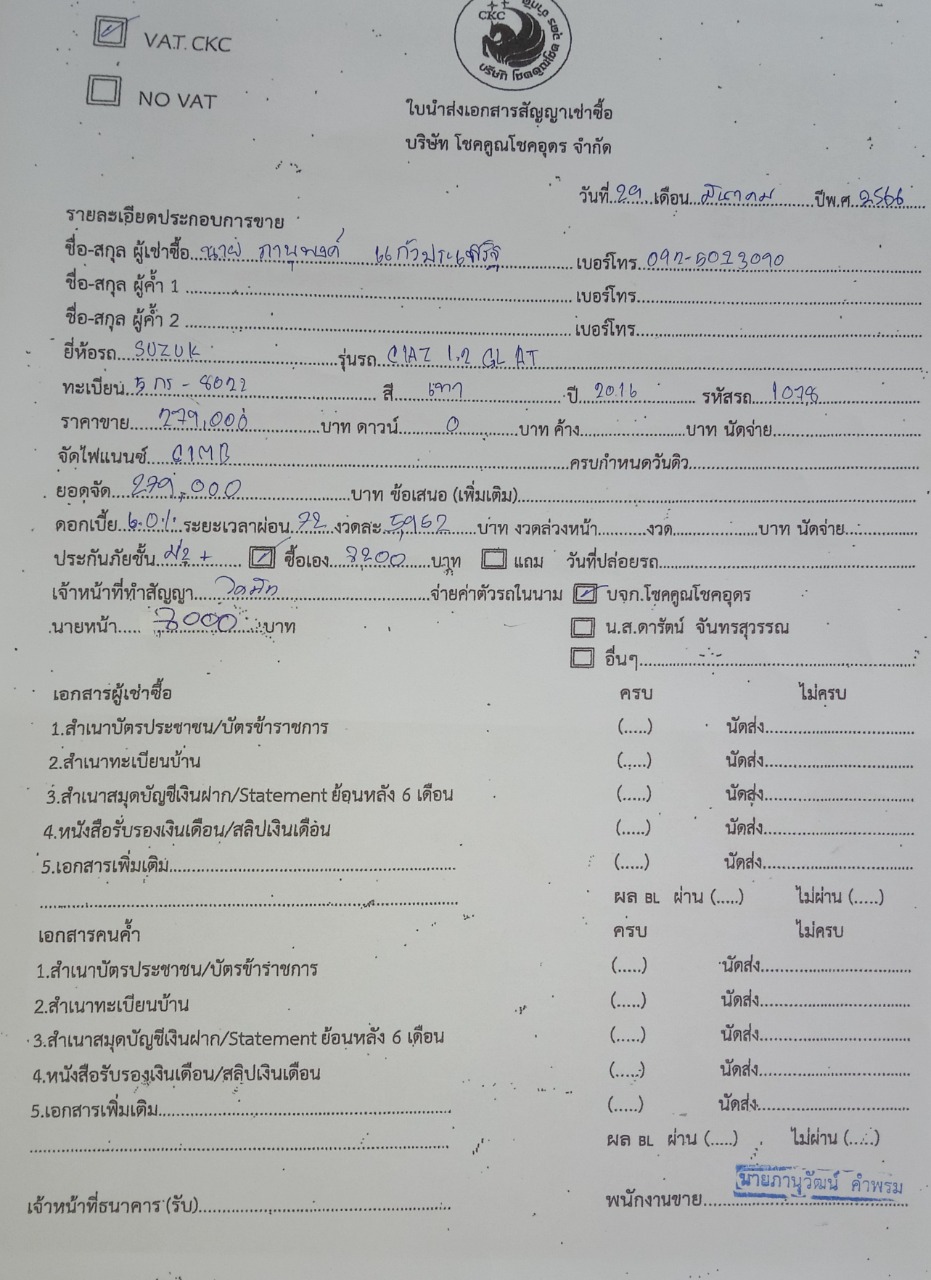 VAT. CKC
CKC
บริษัท โชคคูณโชค
NO VAT
ใบนำส่งเอกสารสัญญาเช่าซื้อ
บริษัท โชคคูณโชคอุดร จำกัด
วันที่ 29 เดือน มีนาคม ปีพ.ศ. 2566
รายละเอียดประกอบการขาย
ชื่อ-สกุล ผู้เช่าซื้อ นาย ภานุพงค์ แก้วประเสริฐ เบอร์โทร. 092-5023090
ชื่อ-สกุล ผู้ค้ำ 1 เบอร์โทร
ชื่อ-สกุล ผู้ค้ำ 2 เบอร์โทร
ยี่ห้อรถ SUZUK รุ่นรถ CIAZ 1.2 GL AT
ทะเบียน 5 กร - 8022 สี เทา ปี 2016 รหัสรถ 1078
ราคาขาย 279,000 บาท ดาวน์ 0 บาท ค้าง บาท นัดจ่าย
จัดไฟแนนซ์ CIMB ครบกำหนดวันดิว
ยอดจัด 279,000 บาท ข้อเสนอ (เพิ่มเติม)
ดอกเบี้ย 6.0% ระยะเวลาผ่อน 72 งวดละ 5952 บาท งวดล่วงหน้า งวด บาท นัดจ่าย
ประกันภัยชั้น 2+ ซื้อเอง 8200 บาท แถม วันที่ปล่อยรถ
เจ้าหน้าที่ทำสัญญา จ่ายค่าตัวรถในนาม บจก.โชคคูณโชคอุดร
นายหน้า 7000 บาท น.ส.ดารัตน์ จันทรสุวรรณ
อื่นๆ
เอกสารผู้เช่าซื้อ ครบ ไม่ครบ
1.สำเนาบัตรประชาชน/บัตรข้าราชการ (.....) นัดส่ง
2.สำเนาทะเบียนบ้าน (.....) นัดส่ง
3.สำเนาสมุดบัญชีเงินฝาก/Statement ย้อนหลัง 6 เดือน (.....) นัดส่ง
4.หนังสือรับรองเงินเดือน/สลิปเงินเดือน (.....) นัดส่ง
5.เอกสารเพิ่มเติม (.....) นัดส่ง
ผล BL ผ่าน (.....) ไม่ผ่าน (.....)
เอกสารคนค้ำ ครบ ไม่ครบ
1.สำเนาบัตรประชาชน/บัตรข้าราชการ (.....) นัดส่ง
2.สำเนาทะเบียนบ้าน (.....) นัดส่ง
3.สำเนาสมุดบัญชีเงินฝาก/Statement ย้อนหลัง 6 เดือน (.....) นัดส่ง
4.หนังสือรับรองเงินเดือน/สลิปเงินเดือน (.....) นัดส่ง
5.เอกสารเพิ่มเติม (.....) นัดส่ง
ผล BL ผ่าน (.....) ไม่ผ่าน (.....)
เจ้าหน้าที่ธนาคาร (รับ) พนักงานขาย นายภานุวัฒน์ คำพรม